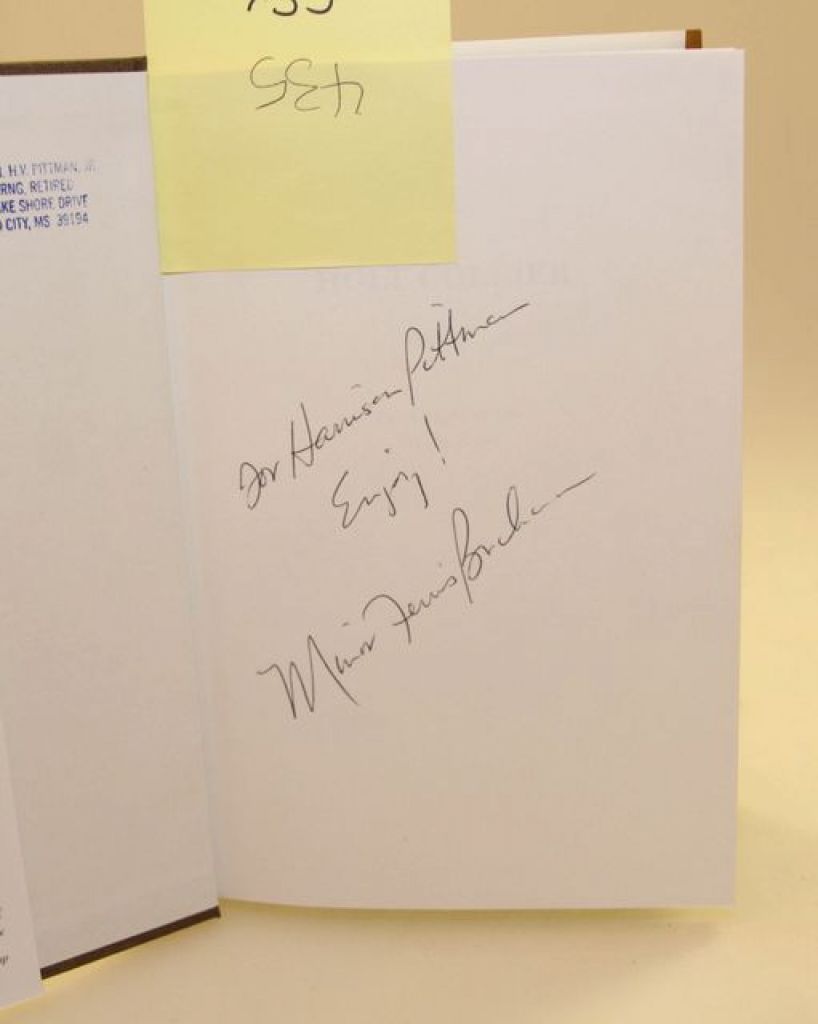 H.V. PITTMAN, JR.
RNG, RETIRED
KE SHORE DRIVE
CITY, MS 39194
435
For Harrison Pittman
Enjoy!
Minor Ferris Buchanan